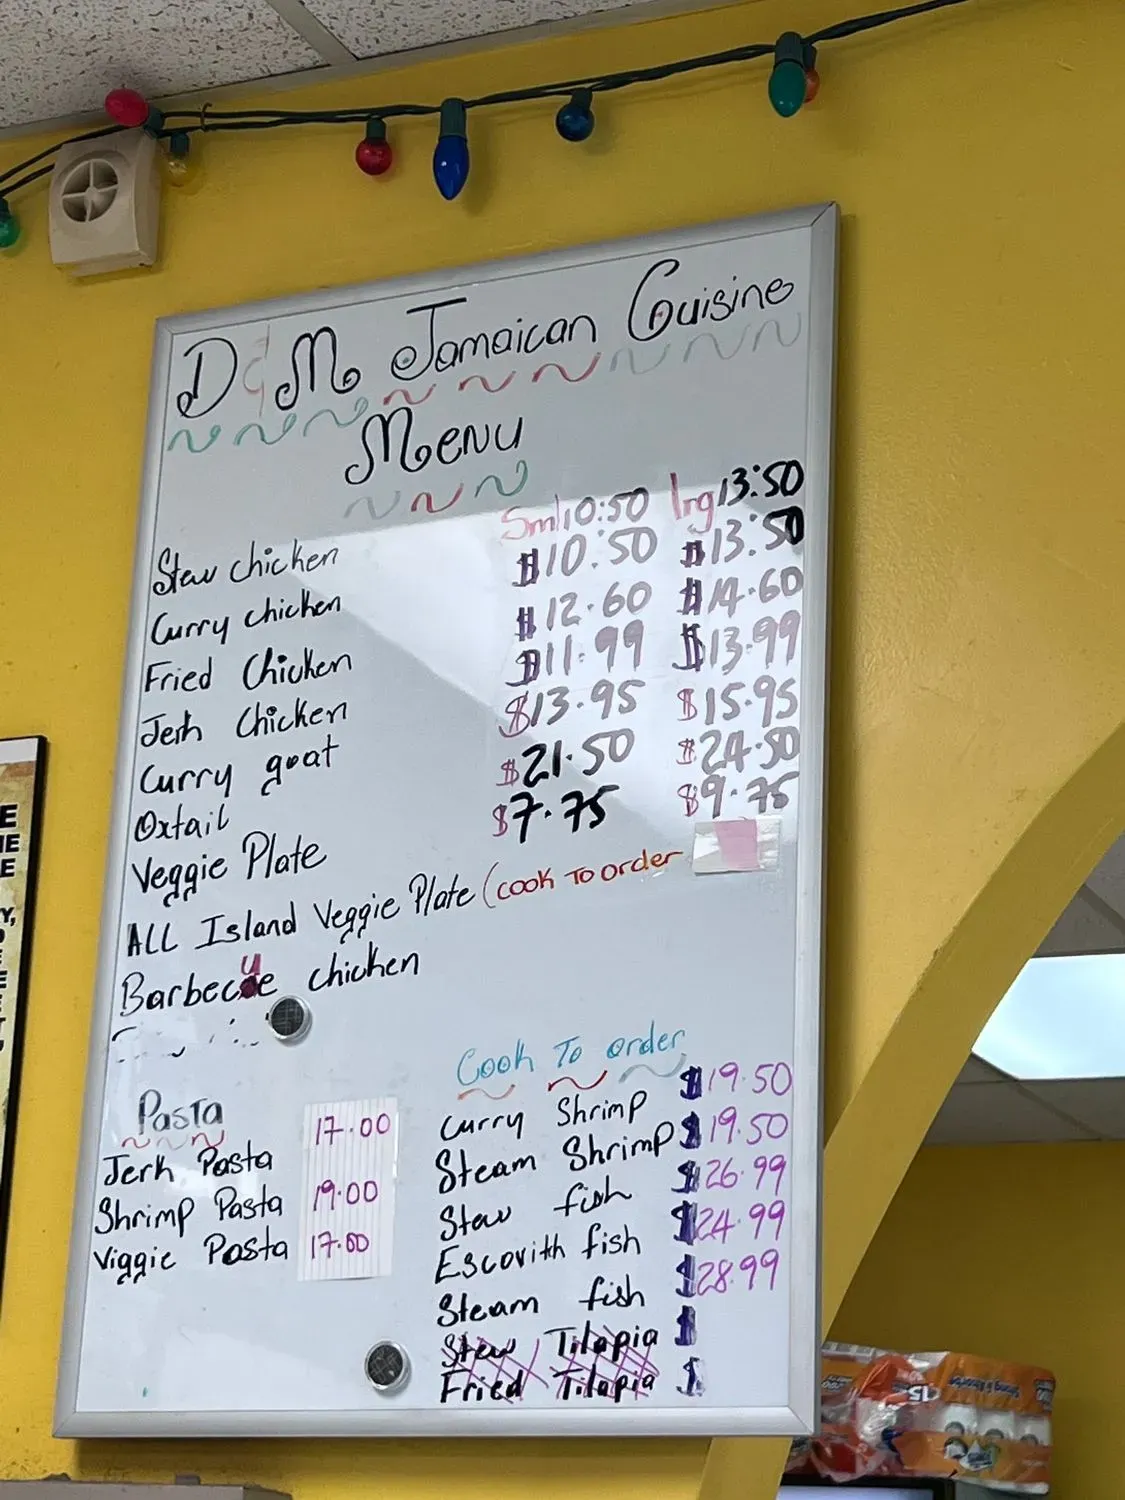 D & M Jamaican Cuisine
Menu
Sml 10:50 lrg 13:50
Stew chicken $10:50 $13:50
Curry chicken $12.60 $14.60
Fried Chicken $11.99 $13.99
Jerk Chicken $13.95 $15.95
Curry goat $21.50 $24.50
Oxtail $7.75 $9.75
Veggie Plate
ALL Island Veggie Plate (cook To order
Barbecue chicken
Pasta
Jerk Pasta 17.00
Shrimp Pasta 19.00
Viggie Pasta 17.00
Cook To order
Curry Shrimp $19.50
Steam Shrimp $19.50
Stew fish $26.99
Escovith fish $24.99
Steam fish $28.99
Stew Tilapia $
Fried Tilapia $
15